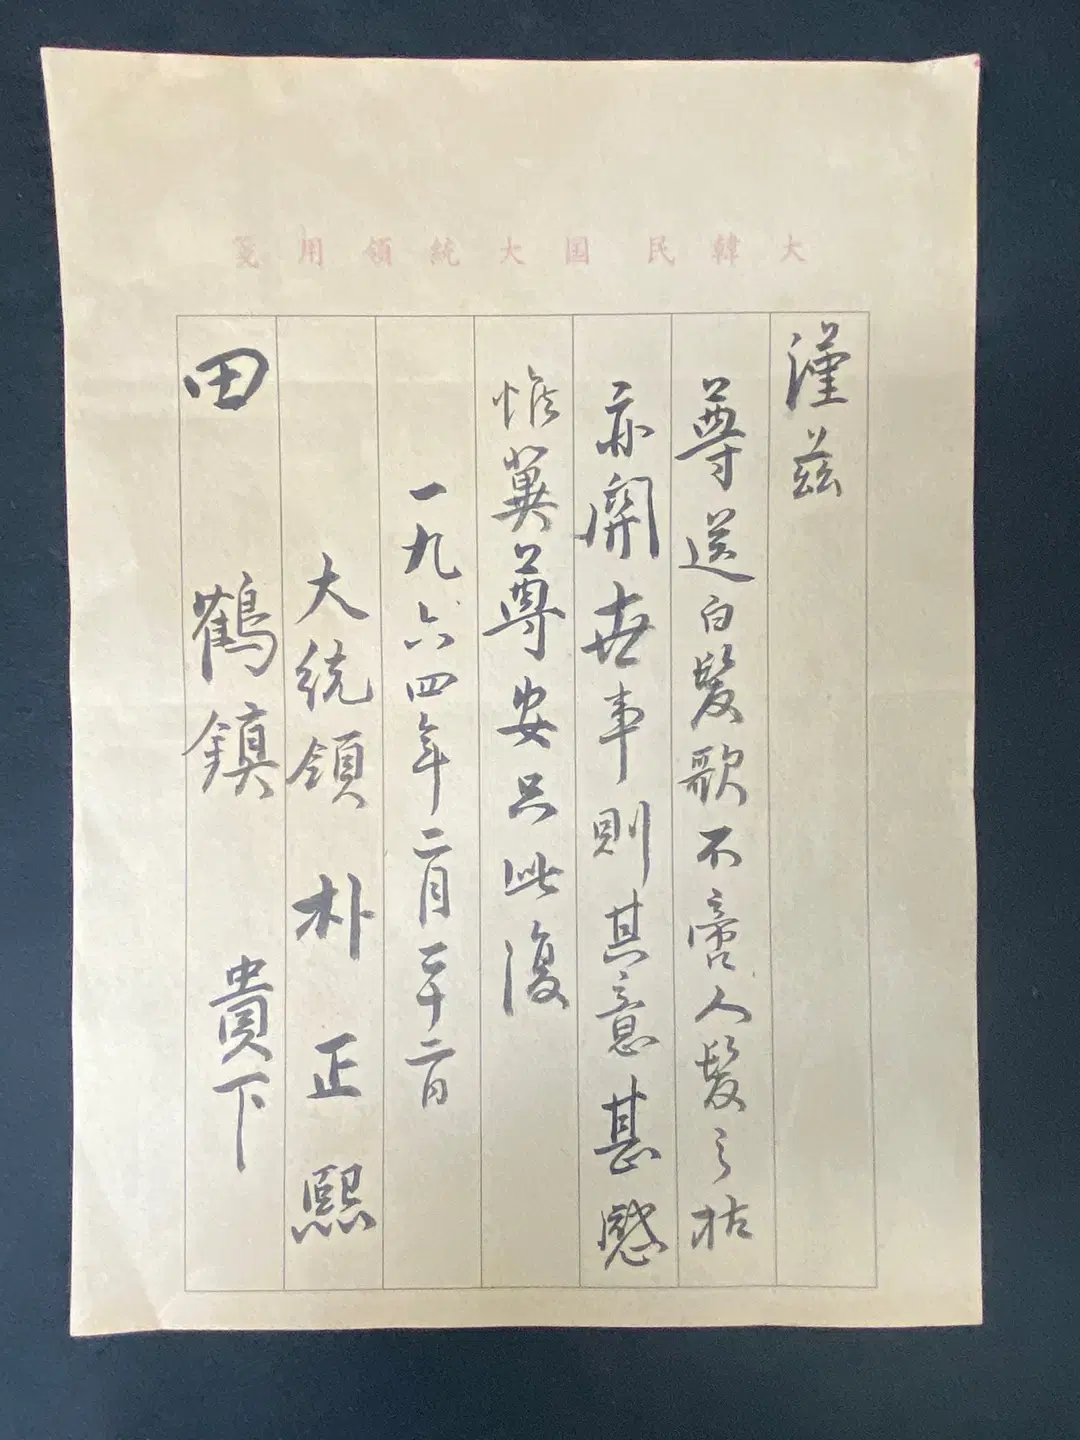 大韓民国大統領用箋
謹茲
尊送白髮歌不啻人髮之枯
亦関世事則其意甚感
惟冀尊安只此復
一九六四年二月二十二日
大統領 朴正熙
田鶴鎮 貴下